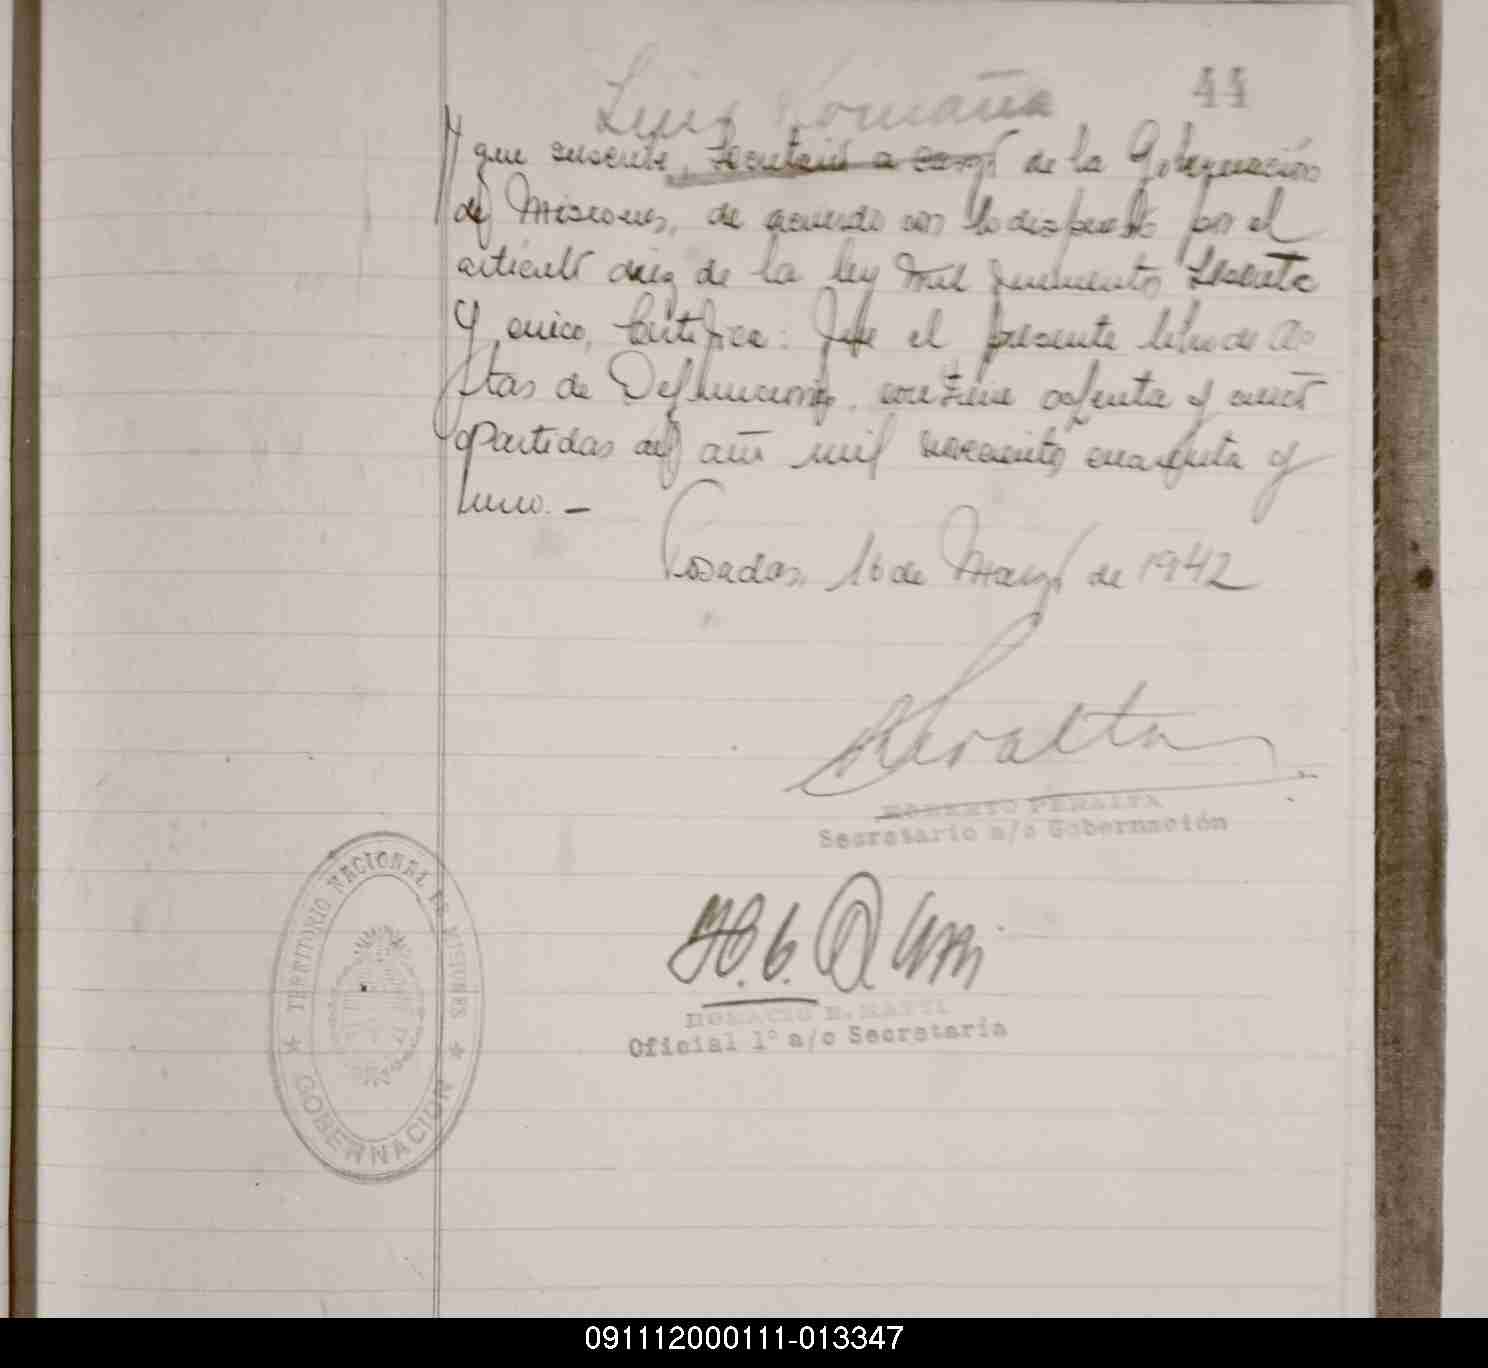 Luis Romaña
44
El que suscribe, Secretario a cargo de la Gobernación
de Misiones, de acuerdo con lo dispuesto por el
articulo diez de la ley mil quinientos sesenta
y cinco, Certifica: Que el presente libro de Ac-
tas de Defunciones, contiene ochenta y cinco
partidas del año mil novecientos cuarenta y
uno. -
Posadas, 16 de Marzo de 1942
Peralta
ROBERTO PERALTA
Secretario a/c Gobernación
TERRITORIO NACIONAL DE MISIONES
GOBERNACION
Oficial 1º a/c Secretaría
091112000111-013347